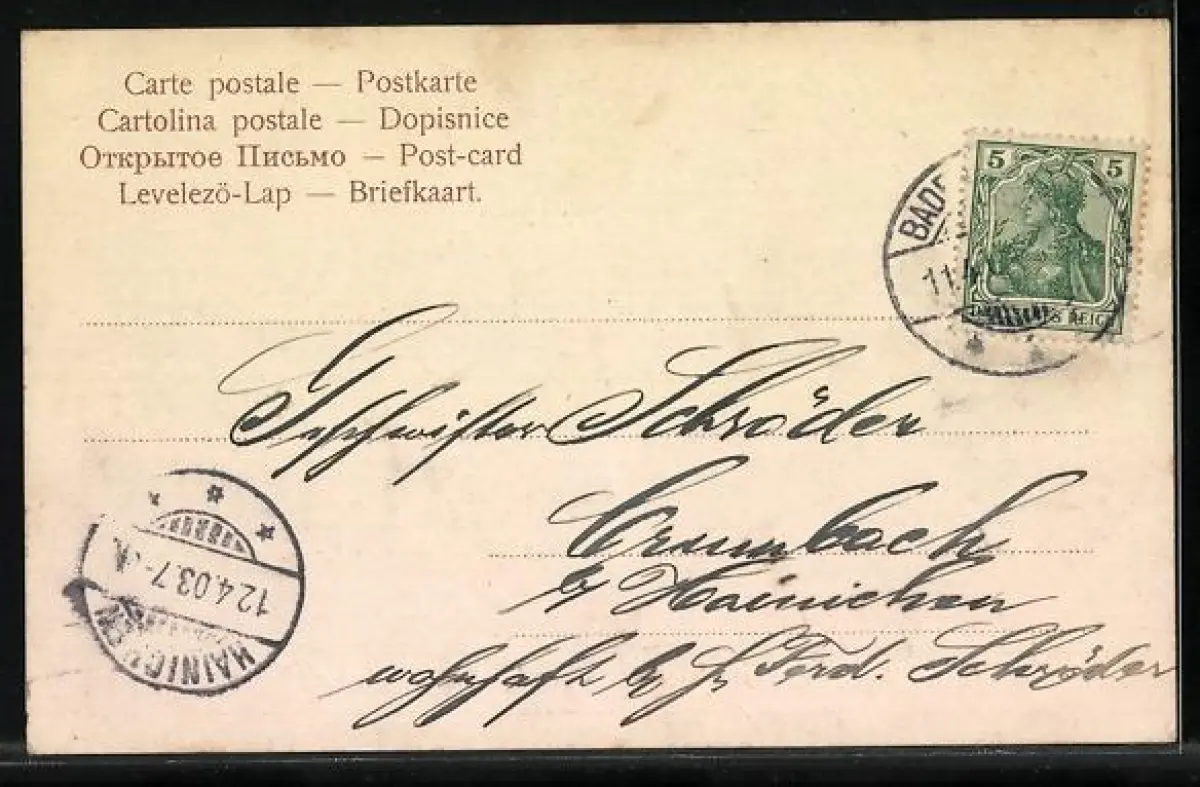 Carte postale — Postkarte
Cartolina postale — Dopisnice
Открытое Письмо — Post-card
Levelező-Lap — Briefkaart.
5 5
REICH
BAD
11.
Geschwister Schröder
Crumbach
b/ Hainichen
wohnhaft b/ H. Ferd. Schröder
12.4.03.7-
HAINICHEN